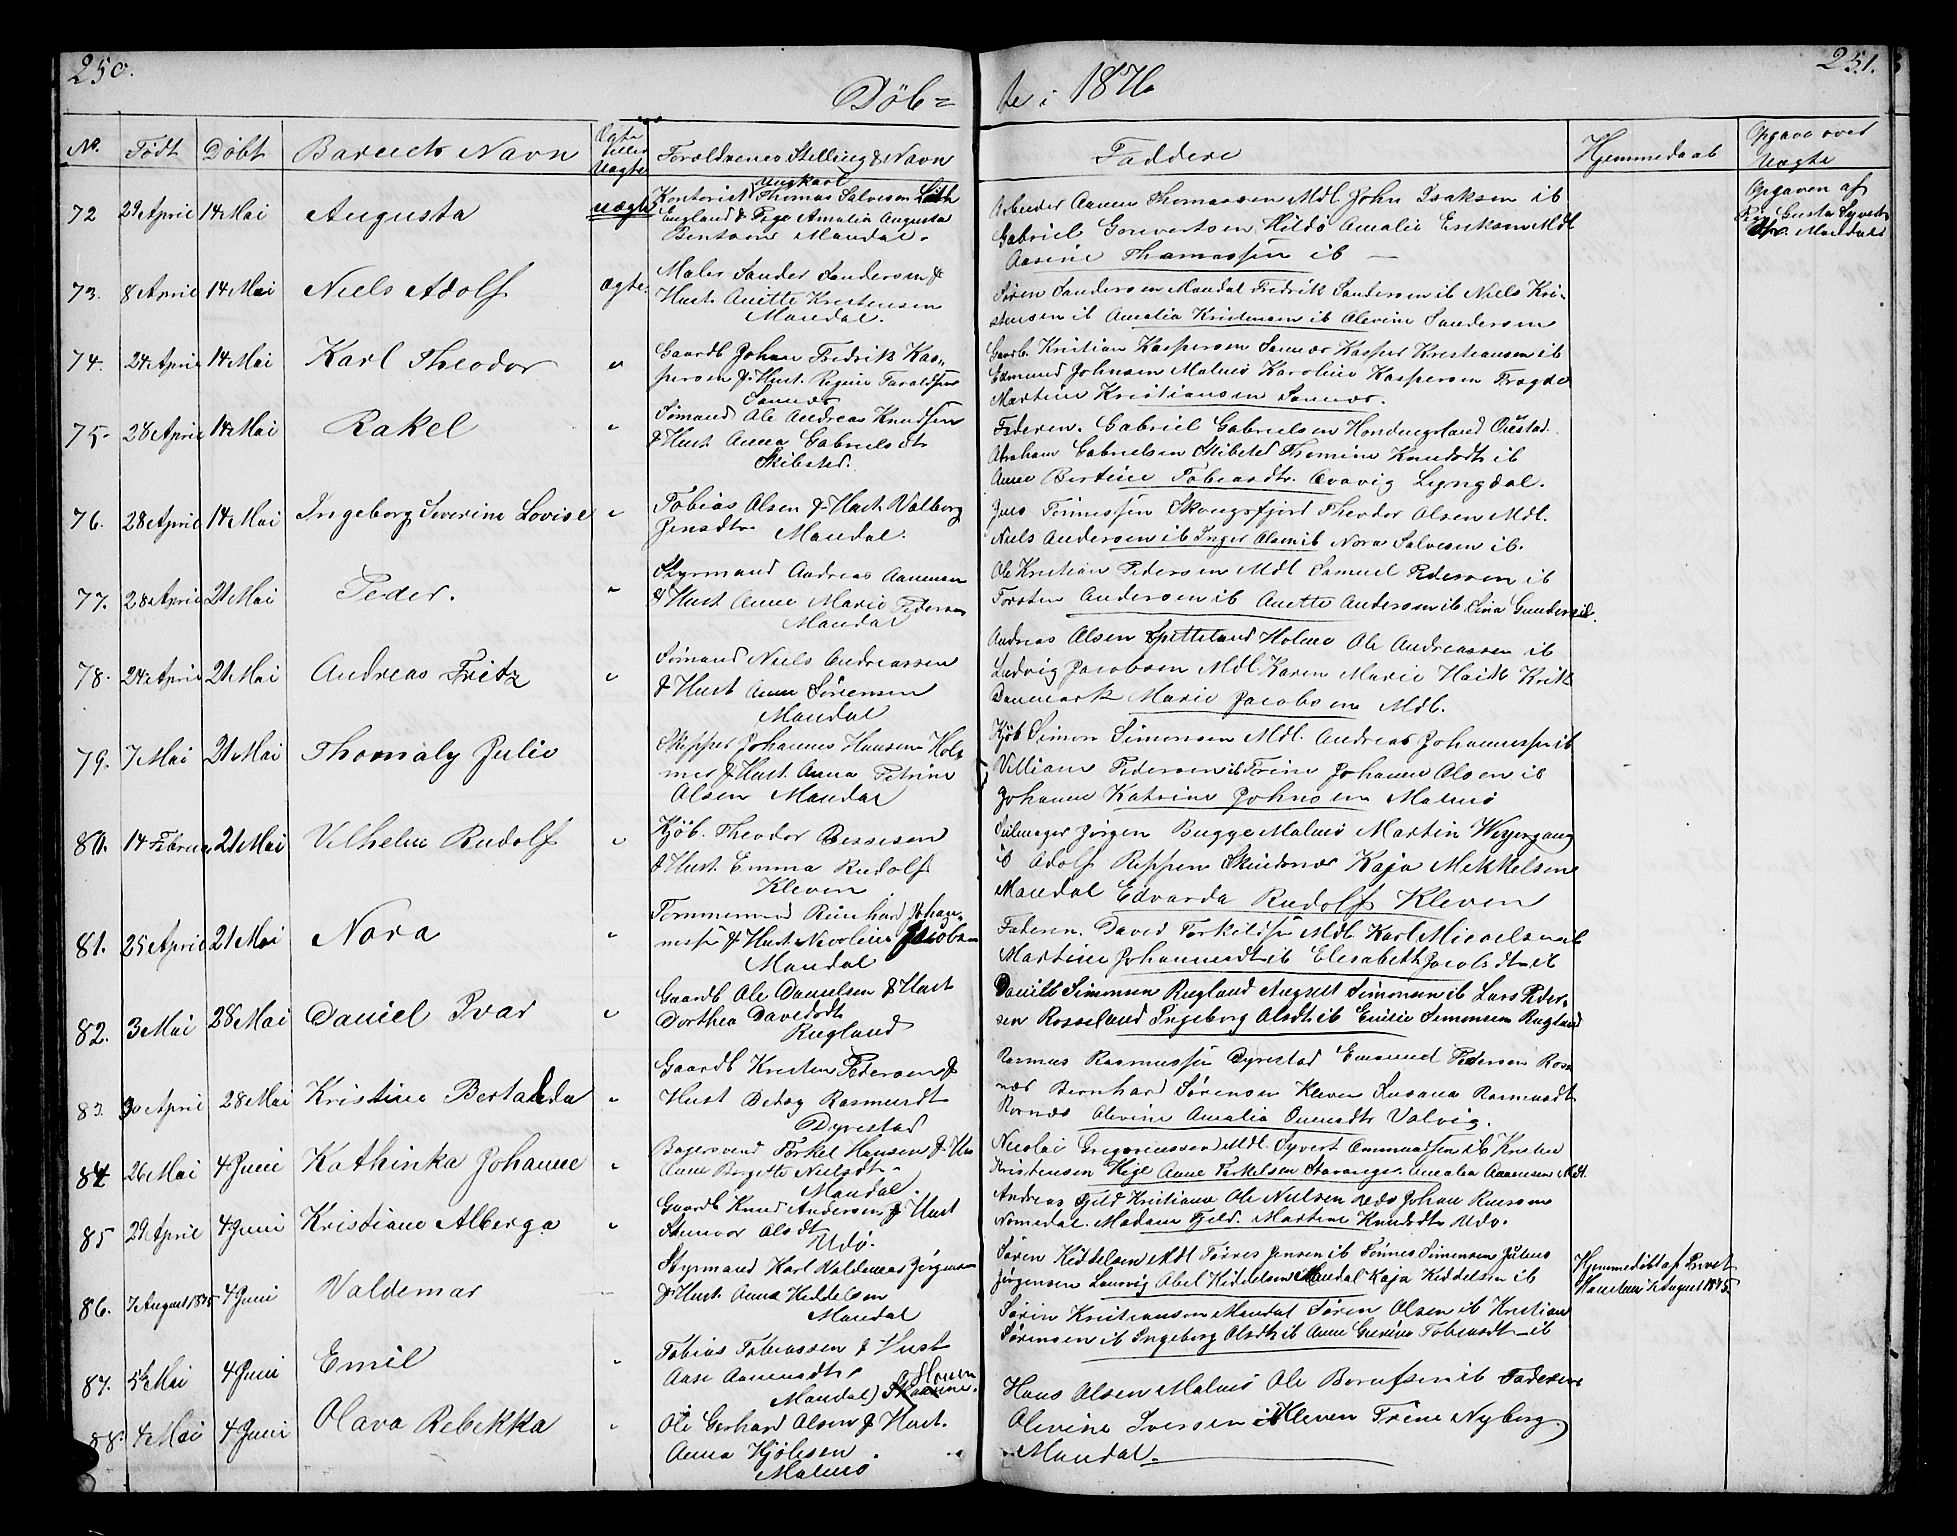 250.
251.
Døb=
te i 1876
No.
Født
Døbt
Barnets Navn
Ægte eller Uægte
Forældrenes Stilling & Navn
Faddere
Hjemmedaab
Opgave over Uægte
72 29 April 14 Mai Augusta uægte
Ungkarl
Kontorist Thomas Salvesen
England & Pige Amalia Augusta
Mandal.
Arbeider Aanen Thomassen Mdl John Isaksen ib
Gabriel Govertsen Hildø Amalie Eriksen Mdl
Aasine Thomassen ib
Opgaven af
Gusta Syverts
Mandal
73. 8 April 14 Mai Niels Adolf ægte
Maler Sander Sandersen &
Hust. Anitte Kristensen
Mandal.
Søren Sandersen Mandal Fredrik Sandersen ib Niels Kri-
stensen ib Amalia Kristensen ib Olevine Sandersen
74. 24 April 14 Mai Karl Theodor "
Gaardb Johan Fredrik Kas-
persen & Hust. Regine Taraldsen
Sannæs
Gaardb. Kristian Kaspersen Sannæs Kasper Kristiansen ib
Edmund Johnsen Malmø Karoline Kaspersen Tregde
Martine Kristiansen Sannæs.
75. 28 April 14 Mai Rakel "
Sømand Ole Andreas Knudsen
& Hust. Anna Gabrielsdt
Skibsted.
Faderen. Gabriel Gabrielsen
Abraham Gabrielsen Skibsted Thomine Knudsdt ib
Anne Bertine Tobiasdtr. Lyngdal.
76. 28 April 14 Mai Ingeborg Severine Lovise "
Tobias Olsen & Hust Valborg
Jensdtr Mandal.
Jens Tønnessen Skogsfjord Theodor Olsen Mdl.
Niels Andersen ib Inger Olsen ib Nora Salvesen ib.
77. 28 April 21 Mai Peder. "
Styrmand Andreas Aanensen
& Hust Anne Marie Pedersen
Mandal
Ole Kristian Pedersen Mdl Samuel Pedersen ib
Torsten Andersen ib Anette Andersen ib Sina Gundersen ib.
78. 24 April 21 Mai Andreas Fritz "
Sømand Niels Andreassen
& Hust Anne Sørensen
Mandal
Andreas Olsen Holme Ole Andreassen ib
Ludvig Jacobsen Mdl. Karen Marie
Danmark Marie Jacobsen Mdl.
79. 7 Mai 21 Mai Thomaly Julie
Skipper Johannes Hansen Hol-
mer & Hust. Anna Petrine
Olsen Mandal
Kjøb Simon Simonsen Mdl. Andreas Johannessen ib
Villiam Pedersen ib Trine Johanne Olsen ib
Johanne Katrine Johnsen Malmø
80. 14 Februar 21 Mai Vilhelm Rudolf "
Kjøb. Theodor Bessesen
& Hust. Emma Rudolf
Kleven
Seilmager Jørgen Bugge Malmø Martin Weyergang
ib Adolf Reppen Skindsnæs Kaja Mekkelsen
Mandal Edvarda Rudolf Kleven
81. 25 April 21 Mai Nora "
Tømmermand Reinhard Johan-
nessen & Hust Nicoline Jacobsen
Mandal
Faderen. David Torkildsen Mdl. Karl Micaelsen ib
Martine Johannesdt ib Elisabeth Jacobsdt ib
82. 3 Mai 28 Mai Daniel Ivar "
Gaardb Ole Danielsen & Hust
Dorthea Davidsdt
Rugland
Daniel Simonsen Rugland August Simonsen ib Lars Peder-
sen Rosseland Ingeborg Olsdt ib Emilie Simonsen Rugland
83. 30 April 28 Mai Kristine Bertalda "
Gaardb Kresten Pedersen &
Hust Betzy Rasmusdt
Dyrestad
Rasmus Rasmussen Dyrestad Emanuel Pedersen Ros-
næs Bernhard Sørensen Kleven Susana Rasmusdt
Rosnæs Olevine Amalia Valvig.
84 26 Mai 4 Juni Kathinka Johanne "
Bagersvend Torkel Hansen & Hus
Anne Birgitte Nielsdt.
Mandal.
Nicolai Gregoriussen Mdl. Syvert Emmundsen ib Kristen
Kristensen Hege Anne Torkelsen Stavanger. Amalia Aanensen Mdl.
85 29 April 4 Juni Kristiane Alberga "
Gaardb Knud Andersen & Hust
Stenvor Olsdt
Udø.
Andreas Fjeld Kristiane Ole Nielsen Udø Johan Knudsen
Nomedal. Madam Fjeld. Martine Knudsdt Udø.
86. 7 August 1875 4 Juni Valdemar
Styrmand Karl Valdemar Jørgensen
& Hust. Anna Kiddelsen
Mandal
Søren Kiddelsen Mdl Tørres Jensen ib Tønnes Simensen Julius
Jørgensen Laurvig Abel Kiddelsen Mandal Kaja Kiddelsen ib
Hjemmedøbt af Provst
7 August 1875.
87. 5 Mai 4 Juni Emil "
Tobias Tobiassen & Hust
Aase Aanensdt.
Mandal
Søren Kristiansen Mandal Søren Olsen ib Kristian
Sørensen ib Ingeborg Olsdt ib Anne Gurine Tobiasdt ib
88. 4 Mai 4 Juni Olava Rebekka "
Ole Gerhard Olsen & Hust.
Anna Kjølesen.
Malmø
Hans Olsen Malmø Ole Berntsen ib Faderen
Olevine Iversen Kleven Trine Nyborg
Mandal.